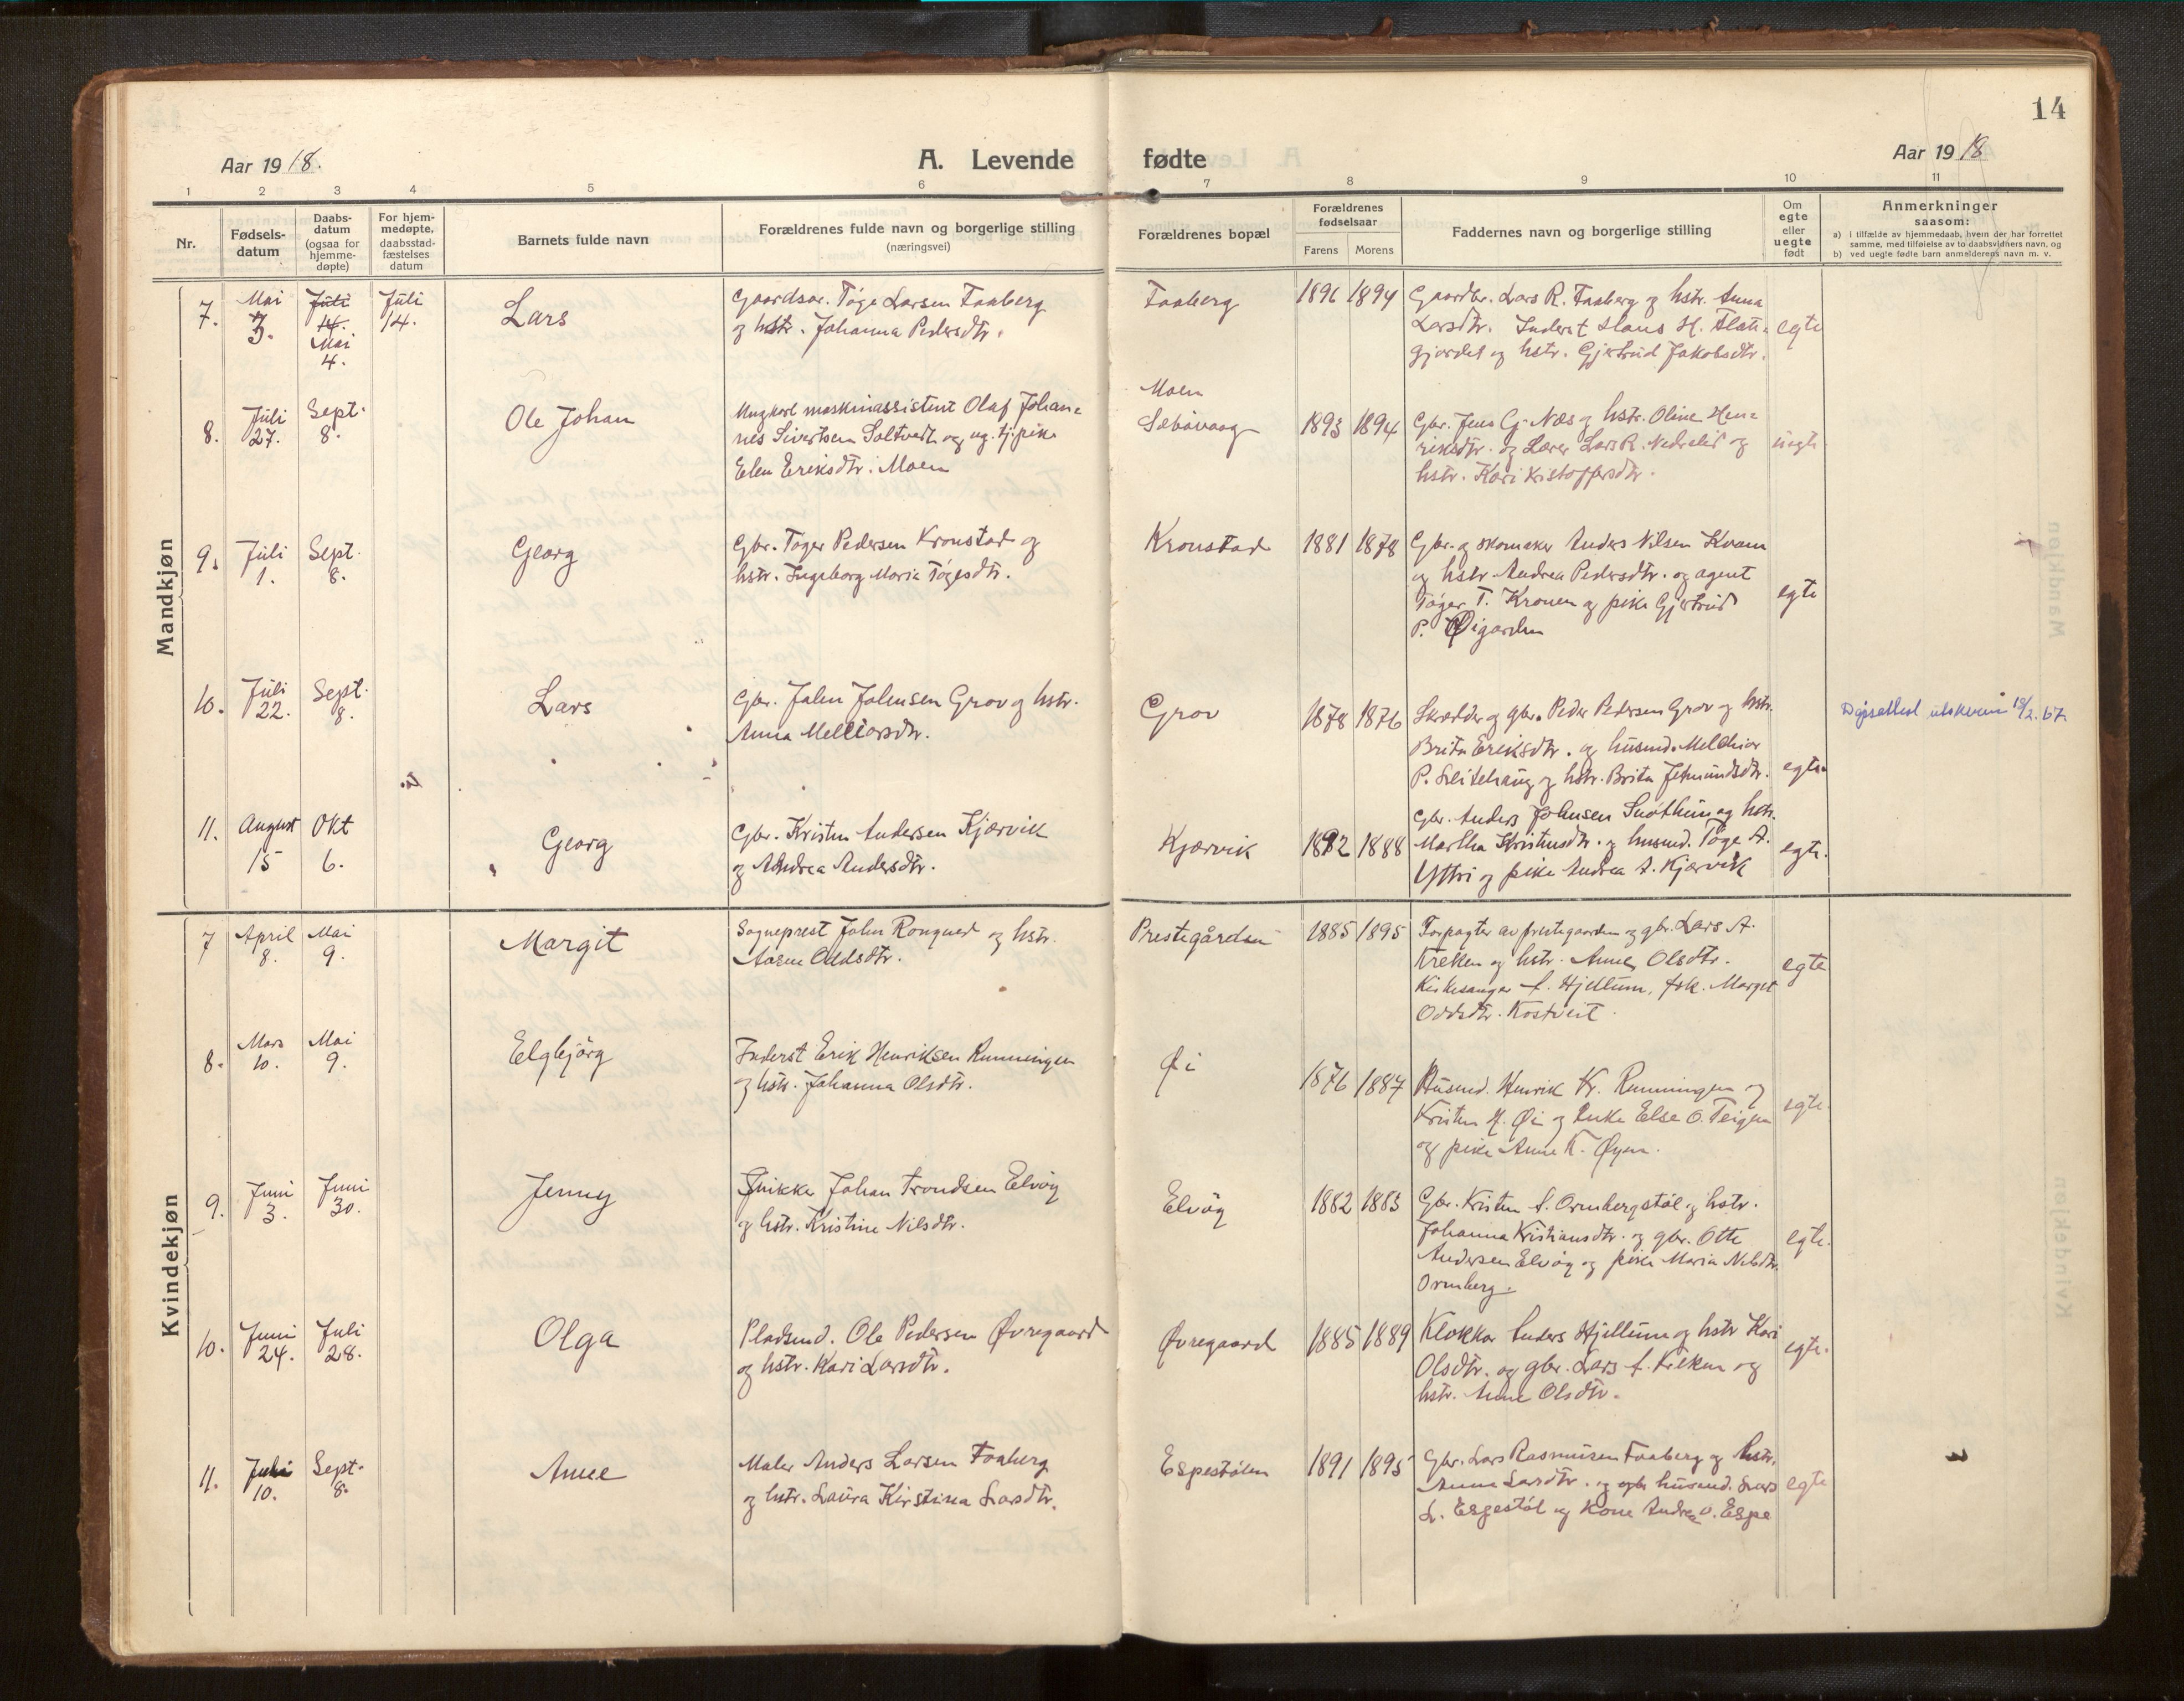 14
Aar 1918.
A. Levende fødte
Aar 1918
1 2 3 4 5 6 7 8 9 10 11
Nr.
Fødsels-
datum
Daabs-
datum
(ogsaa for
hjemme-
døpte)
For hjem-
medøpte,
daabsstad-
fæstelses
datum
Barnets fulde navn
Forældrenes fulde navn og borgerlige stilling
(næringsvei)
Forældrenes bopæl
Forældrenes
fødselsaar
Farens Morens
Faddernes navn og borgerlige stilling
Om
egte
eller
uegte
født
Anmerkninger
saasom:
a) i tilfælde av hjemmedaab, hvem der har forrettet
samme, med tilføielse av to daabsvidners navn, og
b) ved uegte fødte barn anmelderens navn m. v.
Mandkjøn
7.
Mai
3.
Juli
14.
Mai
4.
Juli
14.
Lars
Gaardsar. Tøge Larsen Faaberg
og hstr. Johanna Pedersdtr.
Faaberg
1896 1894
Gaardbr. Lars R. Faaberg og hstr. Anna
Larsdtr. Inderst Hans H. Flati-
gjerdet og hstr. Gjertrud Jakobsdtr.
egte
8.
Juli
27.
Sept.
8.
Ole Johan
Ungkarl maskinassistent Olaf Johan-
nes Sivertsen Soltvedt og ug. tj.pike
Elen Eriksdtr. Moen
Moen
Sæbøvaag
1893 1894
Gbr. Jens G. Næs og hstr. Oline Hen-
riksdtr. og Lærer Lars R. Nedrelid og
hstr. Kari Kristoffersdtr.
uegte
9.
Juli
1.
Sept.
8.
Georg
Gbr. Tøger Pedersen Kronstad og
hstr. Ingeborg Maria Tøgesdtr.
Kronstad
1881 1878
Gbr. og skomaker Anders Nilsen Kvam
og hstr Andrea Pedersdtr. og agent
Tøger T. Kronen og pike Gjertrud
P. Øigarden
egte
10.
Juli
22.
Sept.
8.
Lars
Gbr. John Johnsen Grov og hstr.
Anna Melkiorsdtr.
Grov
1878 1876
Skrædder og gbr. Peder Pedersen Grov og hstr.
Brita Eriksdtr. og husmd. Melchior
P. Sleitehaug og hstr. Brita Jetmundsdtr.
egte.
Dåpsattest utskreven 13/2. 67.
11.
August
15
Okt
6.
Georg
Gbr. Kristen Andersen Kjærvik
og Andrea Andersdtr.
Kjærvik
1892 1888
Gbr. Anders Johnsen Snøthun og hstr.
Martha Kristensdtr. og husmd. Tøge A.
Yttri og pike Andrea A. Kjærvik
egte.
Kvindekjøn
7
April
8.
Mai
9.
Margit
Sogneprest John Rongved og hstr.
Aasne Oddsdtr.
Prestegården
1885 1895
Forpagter av prestegaarden og gbr. Lars A.
Kreken og hstr. Anne Olsdtr.
Kirkesanger A. Hjellum, frk. Margit
Oddsdtr. Kostveit.
egte
8.
Mars
10.
Mai
9.
Elgbjörg
Inderst Erik Henriksen Runningen
og hstr. Johanna Olsdtr.
Øi
1876 1887
Husmd. Henrik Kr. Runningen og
Kristen H. Øi og Enke Else O. Teigen
og pike Anne K. Øyen.
egte.
9.
Juni
3.
Juni
30.
Jenny
Snikker Johan Trondsen Elvøy
og hstr. Kristine Nilsdtr.
Elvøy
1882 1883
Gbr. Kristen A. Ormbergstøl og hstr.
Johanna Kristiansdtr. og gbr. Otte
Andersen Elvøy og pike Maria Nilsdtr.
Ormberg.
egte.
10.
Juni
24.
Juli
28.
Olga
Pladsmd. Ole Pedersen Øvregaard
og hstr. Kari Larsdtr.
Øvregaard
1885 1889
Klokkar Anders Hjellum og hstr Kari
Olsdtr. og gbr. Lars A. Kreken og
hstr. Anne Olsdtr.
egte.
11.
Juli
10.
Sept.
8.
Anne
Maler Anders Larsen Faaberg
og hstr. Laura Kirstina Larsdtr.
Espestølen
1891 1895
Gbr. Lars Rasmusen Faaberg og hstr.
Anna Larsdtr. og husmd. Lars
L. Espestøl og Kone Andrea O. Espe
egte